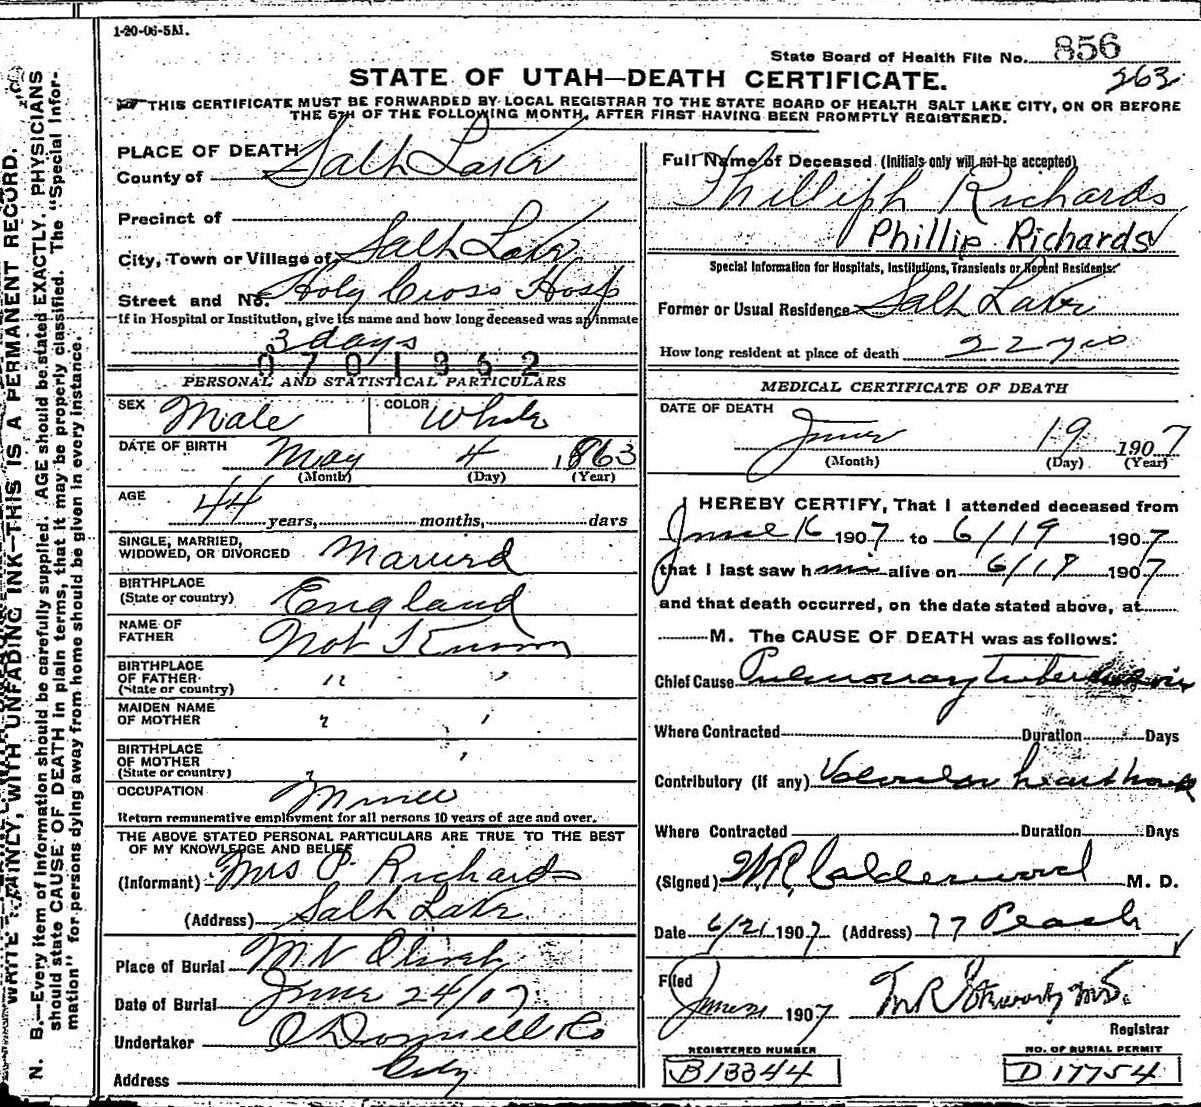 1-20-06-5M.
State Board of Health File No. 856
263
STATE OF UTAH—DEATH CERTIFICATE.
THIS CERTIFICATE MUST BE FORWARDED BY LOCAL REGISTRAR TO THE STATE BOARD OF HEALTH SALT LAKE CITY, ON OR BEFORE
THE 5TH OF THE FOLLOWING MONTH, AFTER FIRST HAVING BEEN PROMPTLY REGISTERED.
PLACE OF DEATH
County of Salt Lake
Precinct of
City, Town or Village of Salt Lake
Street and No. Holy Cross Hosp
If in Hospital or Institution, give its name and how long deceased was an inmate
3 days
0701952
PERSONAL AND STATISTICAL PARTICULARS
SEX Male COLOR White
DATE OF BIRTH May 4 1863
(Month) (Day) (Year)
AGE 44 years, months, days
SINGLE, MARRIED,
WIDOWED, OR DIVORCED Married
BIRTHPLACE
(State or country) England
NAME OF
FATHER Not Known
BIRTHPLACE
OF FATHER
(State or country) " "
MAIDEN NAME
OF MOTHER
BIRTHPLACE
OF MOTHER
(State or country)
OCCUPATION Miner
Return remunerative employment for all persons 10 years of age and over.
THE ABOVE STATED PERSONAL PARTICULARS ARE TRUE TO THE BEST
OF MY KNOWLEDGE AND BELIEF
(Informant) Mrs P. Richards
(Address) Salt Lake
Place of Burial Mt Olivet
Date of Burial June 24/07
Undertaker O'Donnell & Co
Address City
Full Name of Deceased (Initials only will not be accepted)
Phillip Richards
Phillip Richards
Special Information for Hospitals, Institutions, Transients or Recent Residents.
Former or Usual Residence Salt Lake
How long resident at place of death 22 yrs
MEDICAL CERTIFICATE OF DEATH
DATE OF DEATH
June 19 1907
(Month) (Day) (Year)
I HEREBY CERTIFY, That I attended deceased from
June 16 1907 to 6/19 1907
that I last saw him alive on 6/18 1907
and that death occurred, on the date stated above, at
M. The CAUSE OF DEATH was as follows:
Chief Cause Pulmonary Tuberculosis
Where Contracted Duration Days
Contributory (if any) Valvular heart
Where Contracted Duration Days
(Signed) W.R. Calderwood M. D.
Date 6/21 1907 (Address) 77 Peach
Filed
June 21 1907 M.D.
Registrar
REGISTERED NUMBER
B13344
NO. OF BURIAL PERMIT
D17754
WRITE PLAINLY, WITH UNFADING INK—THIS IS A PERMANENT RECORD.
N. B.—Every item of information should be carefully supplied. AGE should be stated EXACTLY. PHYSICIANS
should state CAUSE OF DEATH in plain terms, that it may be properly classified. The "Special Infor-
mation" for persons dying away from home should be given in every instance.